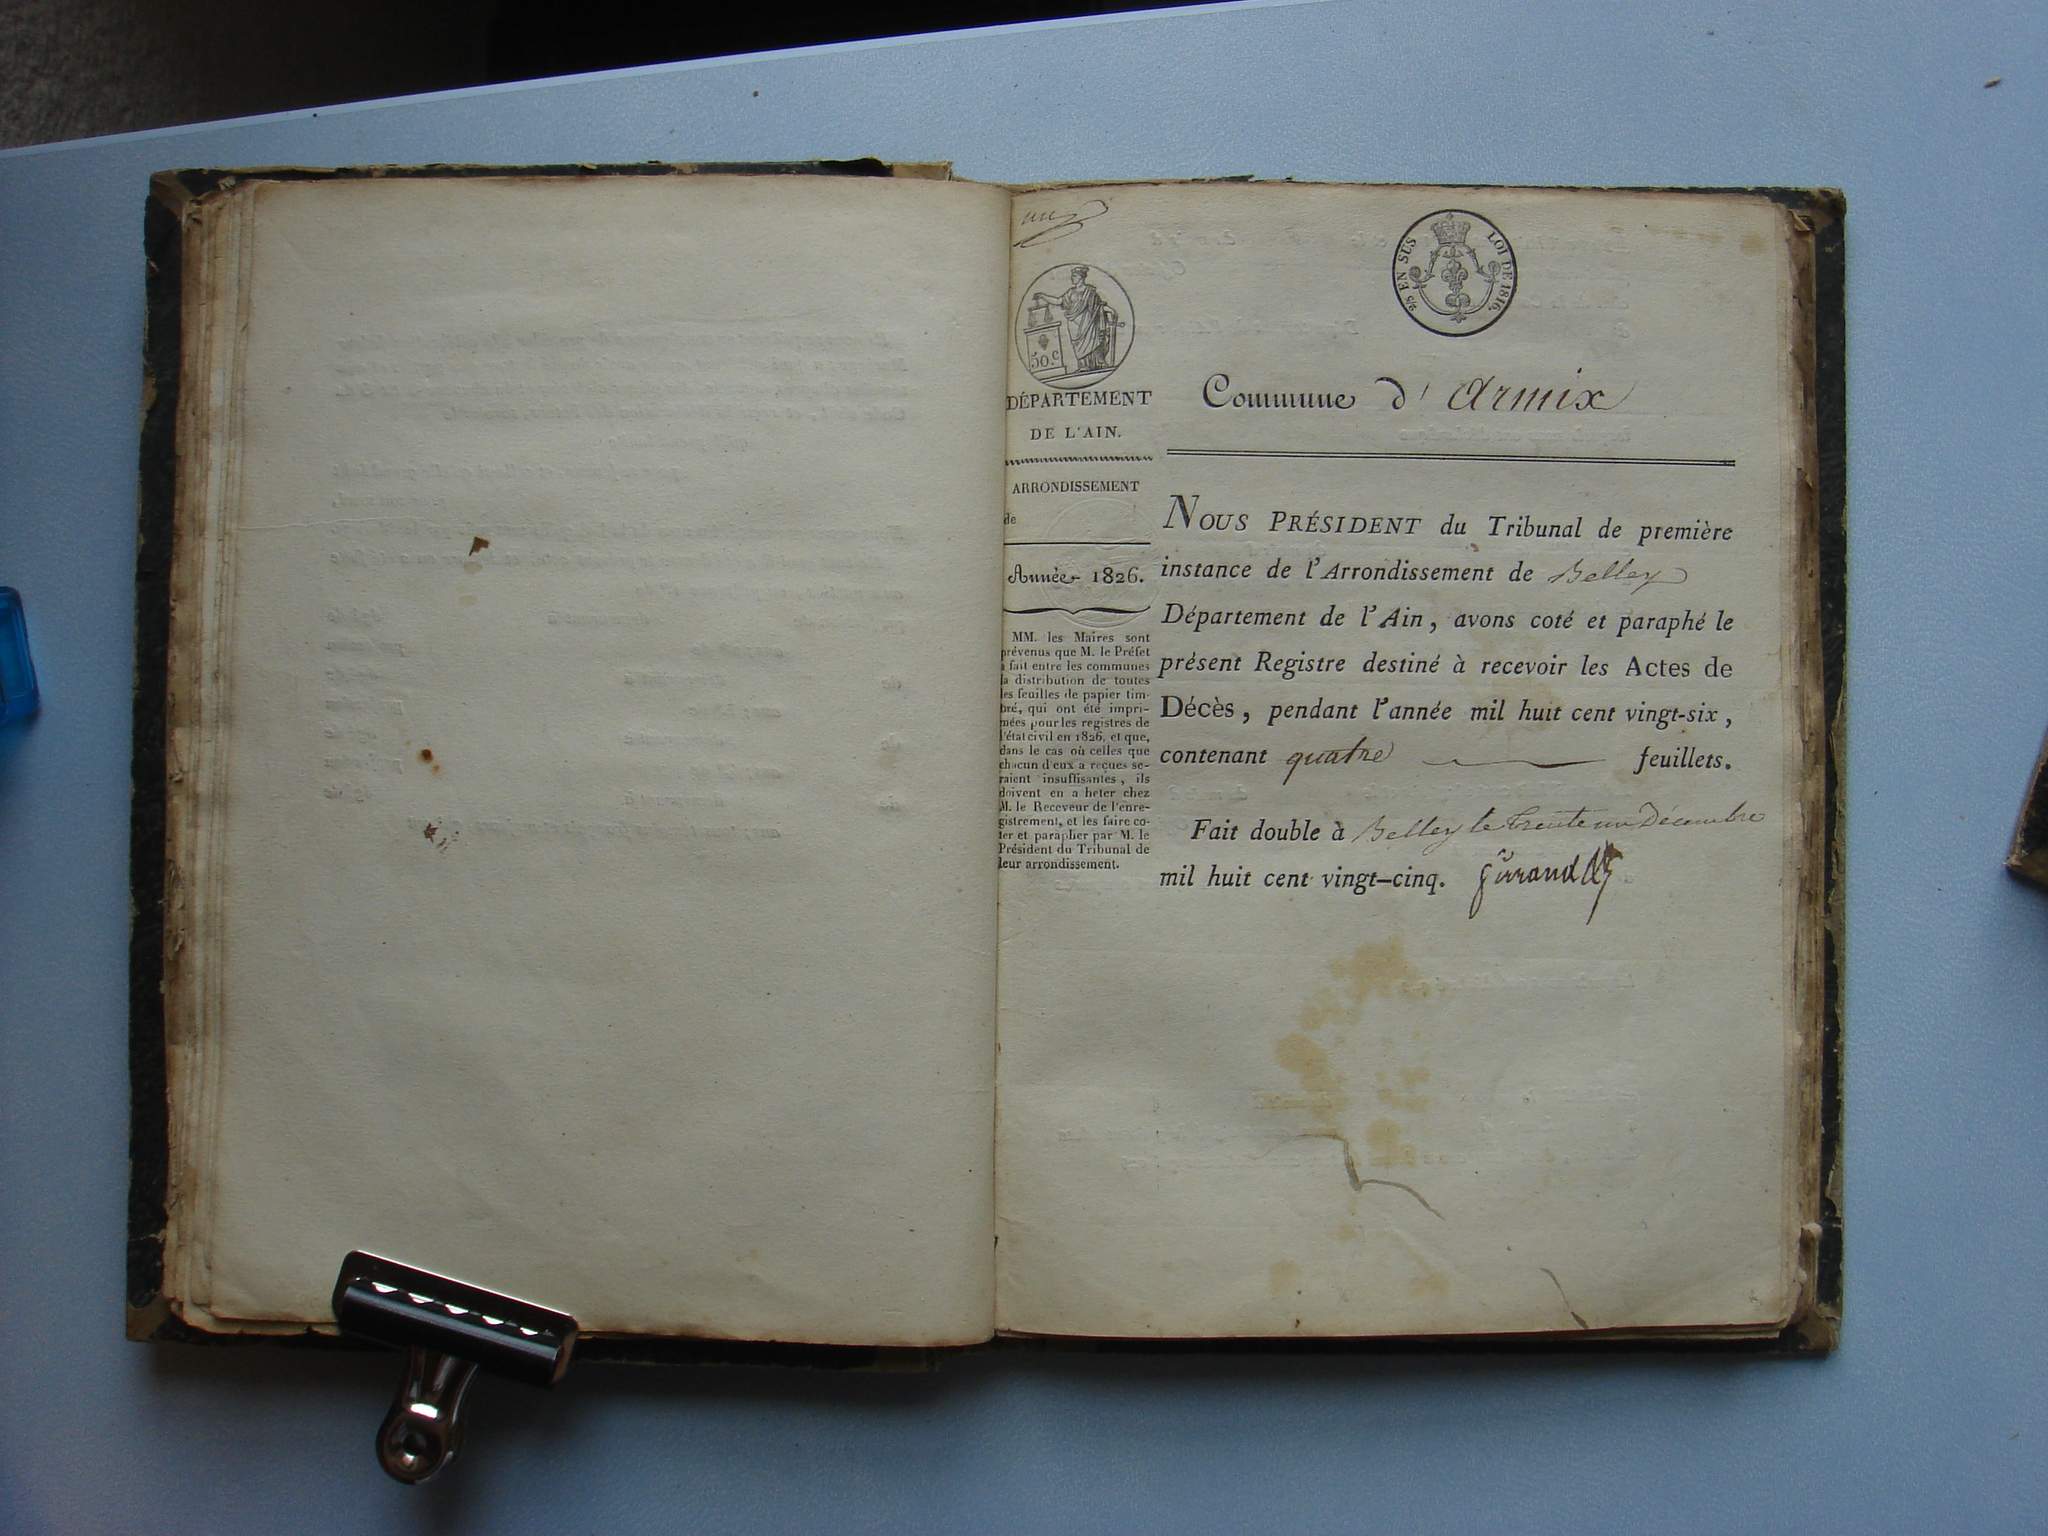 une
50.c
DÉPARTEMENT
DE L'AIN.
ARRONDISSEMENT
de
Année 1826.
MM. les Maires sont
prévenus que M. le Préfet
a fait entre les communes
la distribution de toutes
les feuilles de papier tim-
bré, qui ont été impri-
mées pour les registres de
l'état civil en 1826, et que,
dans le cas où celles que
chacun d'eux a reçues se-
raient insuffisantes, ils
doivent en a heter chez
M. le Receveur de l'enre-
gistrement, et les faire co-
ter et parapher par M. le
Président du Tribunal de
leur arrondissement.
2/5 EN SUS LOI DE 1816.
Commune d' Armix
NOUS PRÉSIDENT du Tribunal de première
instance de l'Arrondissement de Belley
Département de l'Ain, avons coté et paraphé le
présent Registre destiné à recevoir les Actes de
Décès, pendant l'année mil huit cent vingt-six,
contenant quatre feuillets.
Fait double à Belley le trente un Décembre
mil huit cent vingt-cinq.